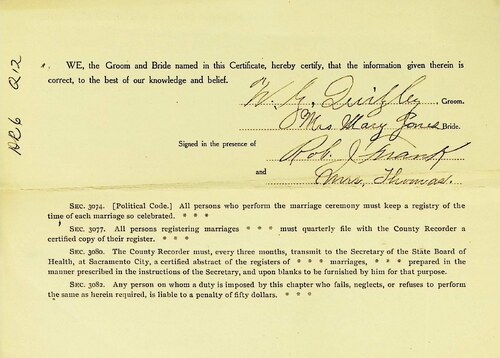 WE, the Groom and Bride named in this Certificate, hereby certify, that the information given therein is
correct, to the best of our knowledge and belief.
W. G. Quigley Groom.
Mrs Mary Jones Bride.
Signed in the presence of
Rob. J. Frank
and
Mrs. Thomas.
SEC. 3074. [Political Code.] All persons who perform the marriage ceremony must keep a registry of the
time of each marriage so celebrated. * * *
SEC. 3077. All persons registering marriages * * * must quarterly file with the County Recorder a
certified copy of their register. * * *
SEC. 3080. The County Recorder must, every three months, transmit to the Secretary of the State Board of
Health, at Sacramento City, a certified abstract of the registers of * * * marriages, * * * prepared in the
manner prescribed in the instructions of the Secretary, and upon blanks to be furnished by him for that purpose.
SEC. 3082. Any person on whom a duty is imposed by this chapter who fails, neglects, or refuses to perform
the same as herein required, is liable to a penalty of fifty dollars. * * *